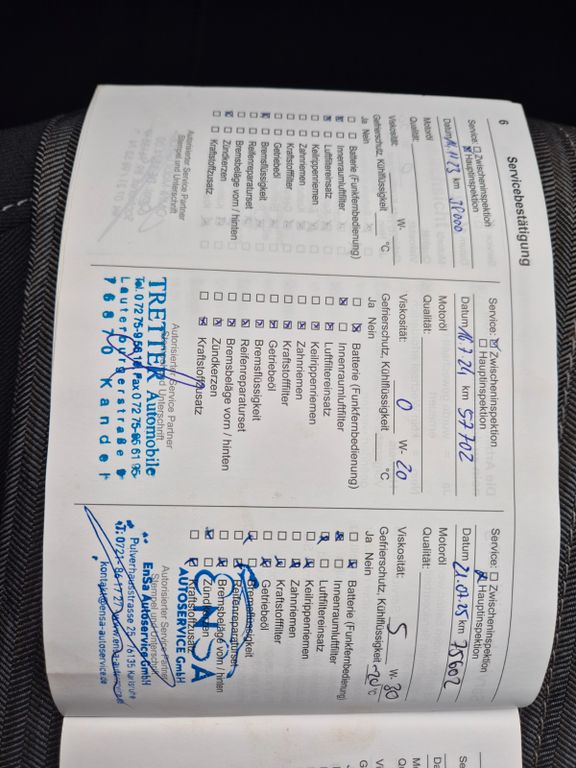 6
Servicebestätigung
Service: ☐ Zwischeninspektion
☒ Hauptinspektion
Datum
km
Motoröl
Qualität:
Viskosität: W-
Gefrierschutz, Kühlflüssigkeit °C
Ja Nein
Batterie (Funkfernbedienung)
Innenraumluftfilter
Luftfiltereinsatz
Keilrippenriemen
Zahnriemen
Kraftstofffilter
Getriebeöl
Bremsflüssigkeit
Reifenreparaturset
Bremsbeläge vorn / hinten
Zündkerzen
Kraftstoffzusatz
Autorisierter Service Partner
Stempel und Unterschrift
Service: ☒ Zwischeninspektion
☐ Hauptinspektion
Datum 16.7.24 km 57702
Motoröl
Qualität:
Viskosität: 0 W- 20
Gefrierschutz, Kühlflüssigkeit °C
Ja Nein
Batterie (Funkfernbedienung)
Innenraumluftfilter
Luftfiltereinsatz
Keilrippenriemen
Zahnriemen
Kraftstofffilter
Getriebeöl
Bremsflüssigkeit
Reifenreparaturset
Bremsbeläge vorn / hinten
Zündkerzen
Kraftstoffzusatz
Autorisierter Service Partner
Stempel und Unterschrift
TRETTER Automobile
Lauterburgerstraße
76870 Kandel
Service: ☐ Zwischeninspektion
☒ Hauptinspektion
Datum 21.07.25 km 75602
Motoröl
Qualität:
Viskosität: 5 W- 30
Gefrierschutz, Kühlflüssigkeit -20 °C
Ja Nein
Batterie (Funkfernbedienung)
Innenraumluftfilter
Luftfiltereinsatz
Keilrippenriemen
Zahnriemen
Kraftstofffilter
Getriebeöl
Bremsflüssigkeit
Reifenreparaturset
Bremsbeläge vorn / hinten
Zündkerzen
Kraftstoffzusatz
ENSA
AUTOSERVICE GmbH
Autorisierter Service Partner
Stempel und Unterschrift
EnSa Autoservice GmbH
Pulverhausstrasse 25, 76135 Karlsruhe
kontakt@ensa-autoservice.de